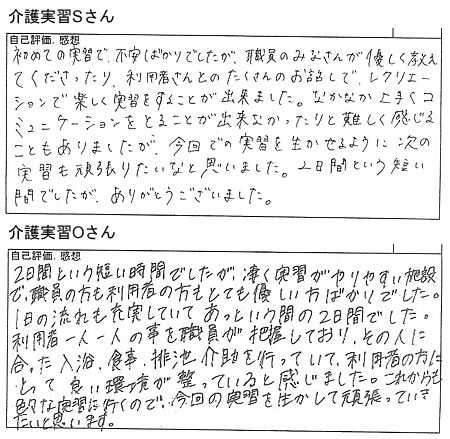 介護実習Sさん
自己評価、感想
初めての実習で、不安ばかりでしたが、職員のみなさんが優しく教え
てくださったり、利用者さんとのたくさんのお話しで、レクリエー
ションで楽しく実習をすることが出来ました。なかなか上手くコ
ミュニケーションをとることが出来なかったりと難しく感じる
こともありましたが、今回での実習を生かせるように次の
実習も頑張りたいなと思いました。2日間という短い
間でしたが、ありがとうございました。
介護実習Oさん
自己評価、感想
2日間という短い時間でしたが、凄く実習がやりやすい施設
で、職員の方も利用者の方もとても優しい方ばかりでした。
1日の流れも充実していてあっという間の2日間でした。
利用者一人一人の事を職員が把握しており、その人に
合った入浴、食事、排泄、介助を行っていて、利用者の方に
とって良い環境が整っていると感じました。これからも
色々な実習に行くので、今回の実習を生かして頑張っていき
たいと思います。